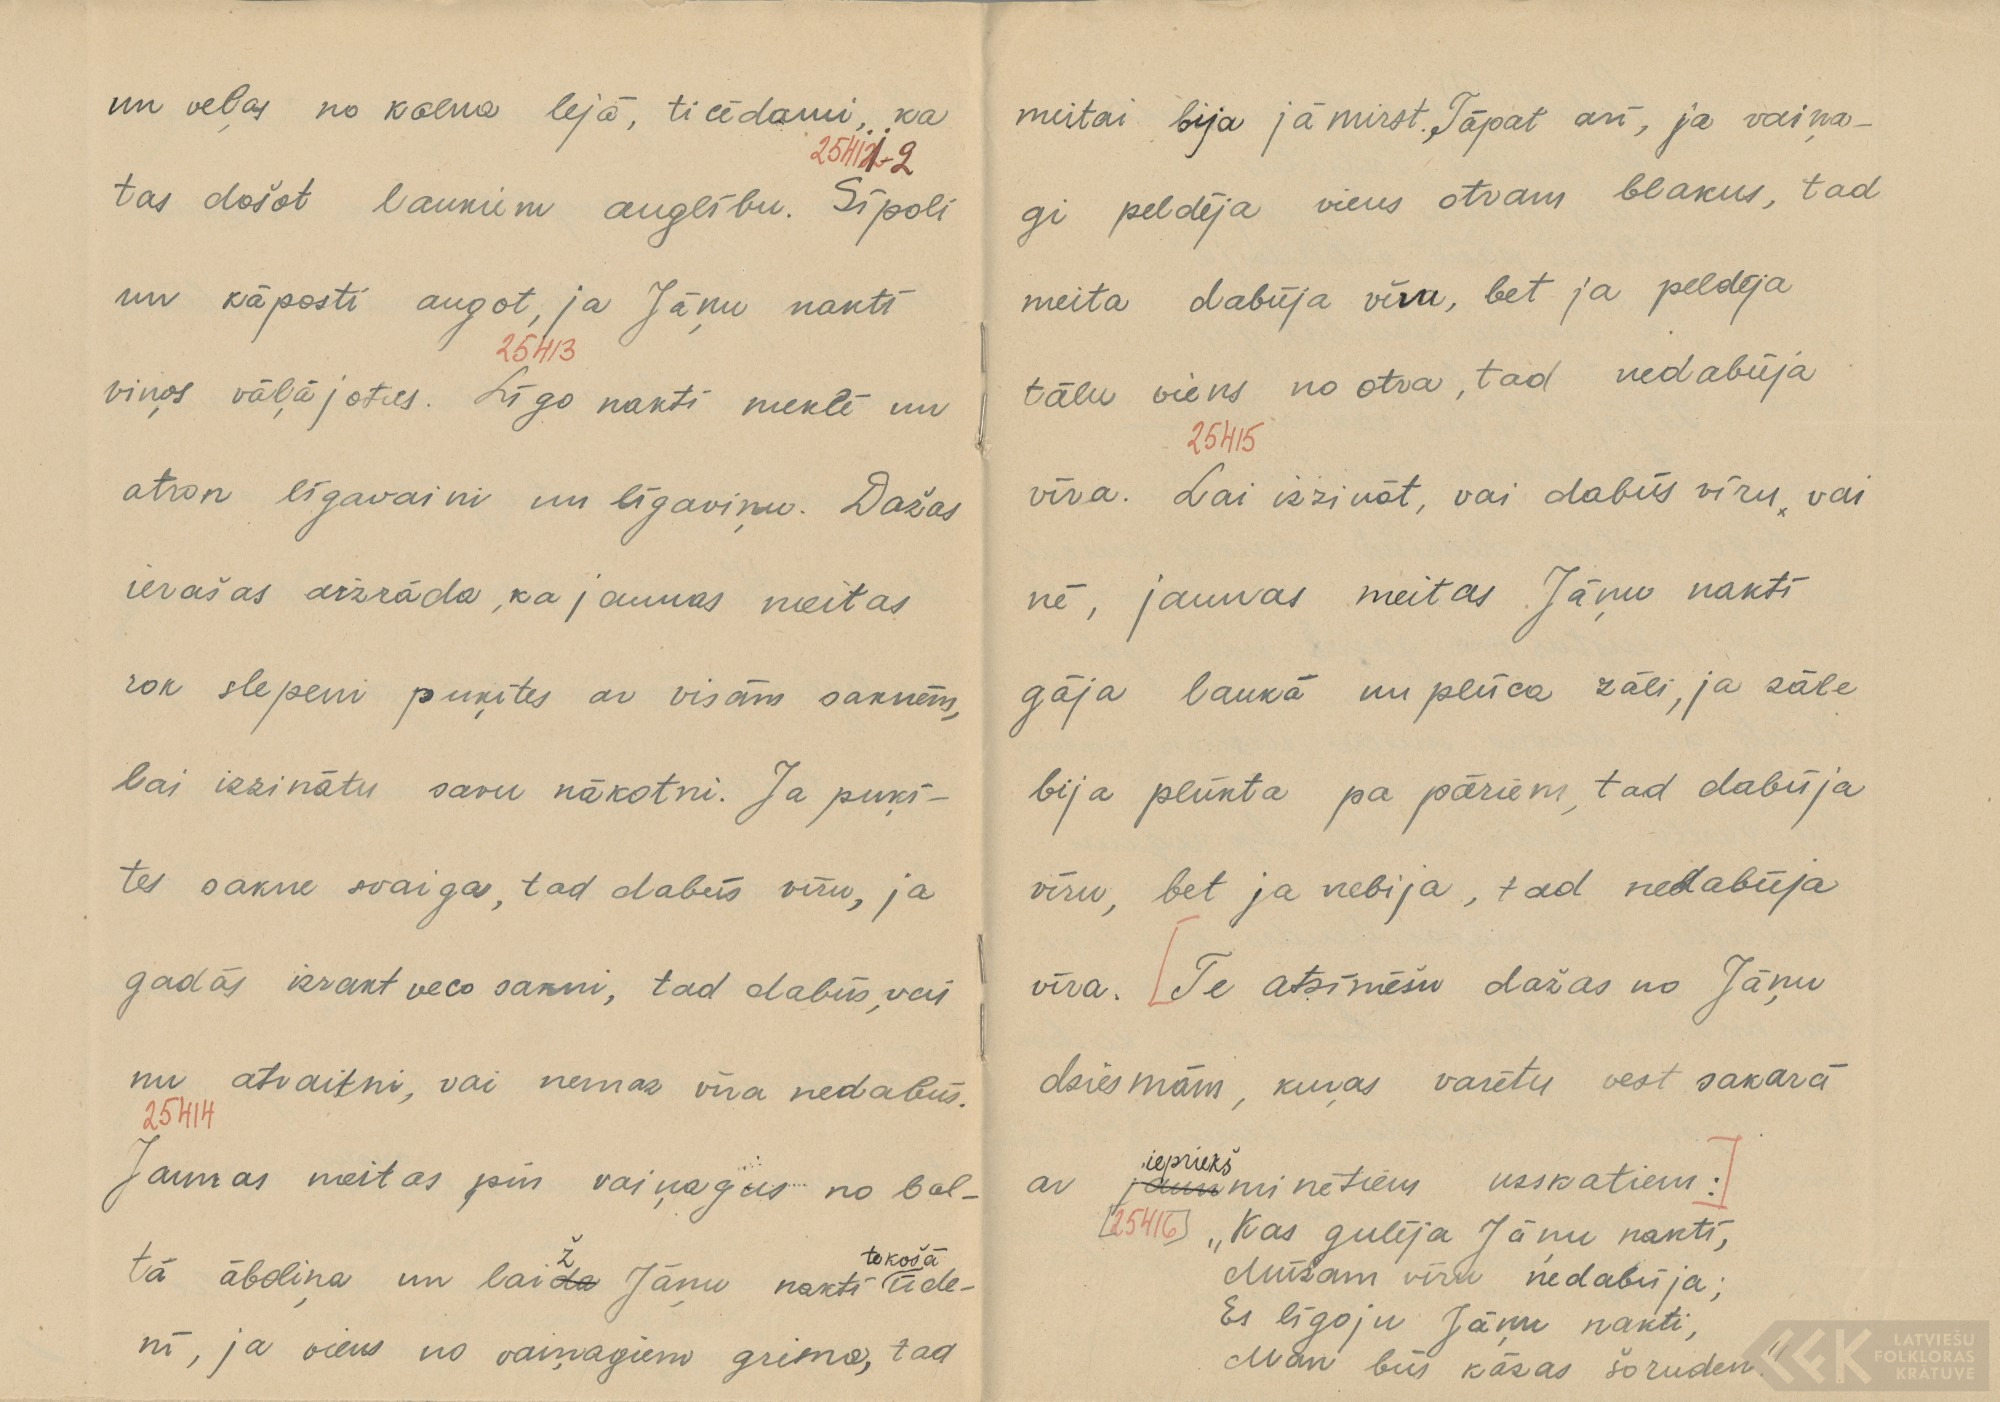 un veļas no kalna lejā, ticēdami, ka
25412 1-2
tas došot laukiem auglību. Sīpoli
un kāposti augot, ja Jāņu naktī
25413
viņos vāļājoties. Līgo naktī meklē un
atron līgavaini un līgaviņu. Dažas
ierašas aizrāda, ka jaunas meitas
rok slepeni puķītes ar visām saknēm,
lai izzinātu savu nākotni. Ja puķī-
tes sakne svaiga, tad dabūs vīru, ja
gadās izrakt veco sakni, tad dabūs, vai
nu atraitni, vai nemaz vīra nedabūs.
25414
Jaunas meitas pin vaiņagus no bal-
tā āboliņa un laiž Jāņu naktī tekošā ūde-
nī, ja viens no vaiņagiem grima, tad
meitai bija jāmirst. Tāpat arī, ja vaiņa-
gi peldēja viens otram blakus, tad
meita dabūja vīru, bet ja peldēja
tālu viens no otra, tad nedabūja
25415
vīra. Lai izzināt, vai dabūs vīru, vai
nē, jaunas meitas Jāņu naktī
gāja laukā un plūca zāli, ja zāle
bija plūkta pa pāriem, tad dabūja
vīru, bet ja nebija, tad nedabūja
vīra. [Te atzīmēšu dažas no Jāņu
dziesmām, kuŗas varētu vest sakarā
iepriekš
ar jaunminētiem uzskatiem:]
[25416] „Kas gulēja Jāņu naktī,
Mūžam vīru nedabūja;
Es līgoju Jāņu nakti,
Man būs kāzas šoruden."
LATVIEŠU
FOLKLORAS
KRĀTUVE